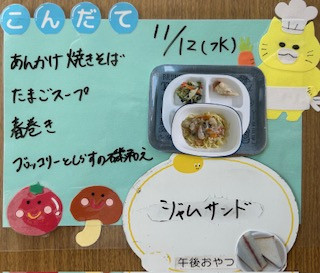 こんだて
11/12(水)
あんかけ焼きそば
たまごスープ
春巻き
ブロッコリーとしらすの磯和え
ジャムサンド
午後おやつ